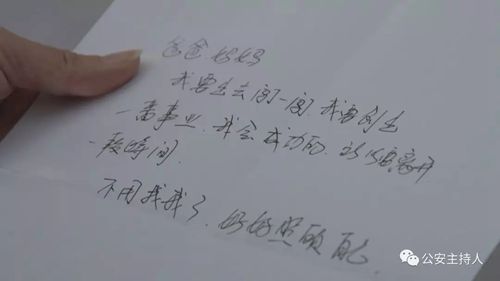 爸爸妈妈
我要出去闯一闯 我要创出
一番事业.我会成功的.离开
一段时间.
不用找我了.好好照顾自己.
公安主持人